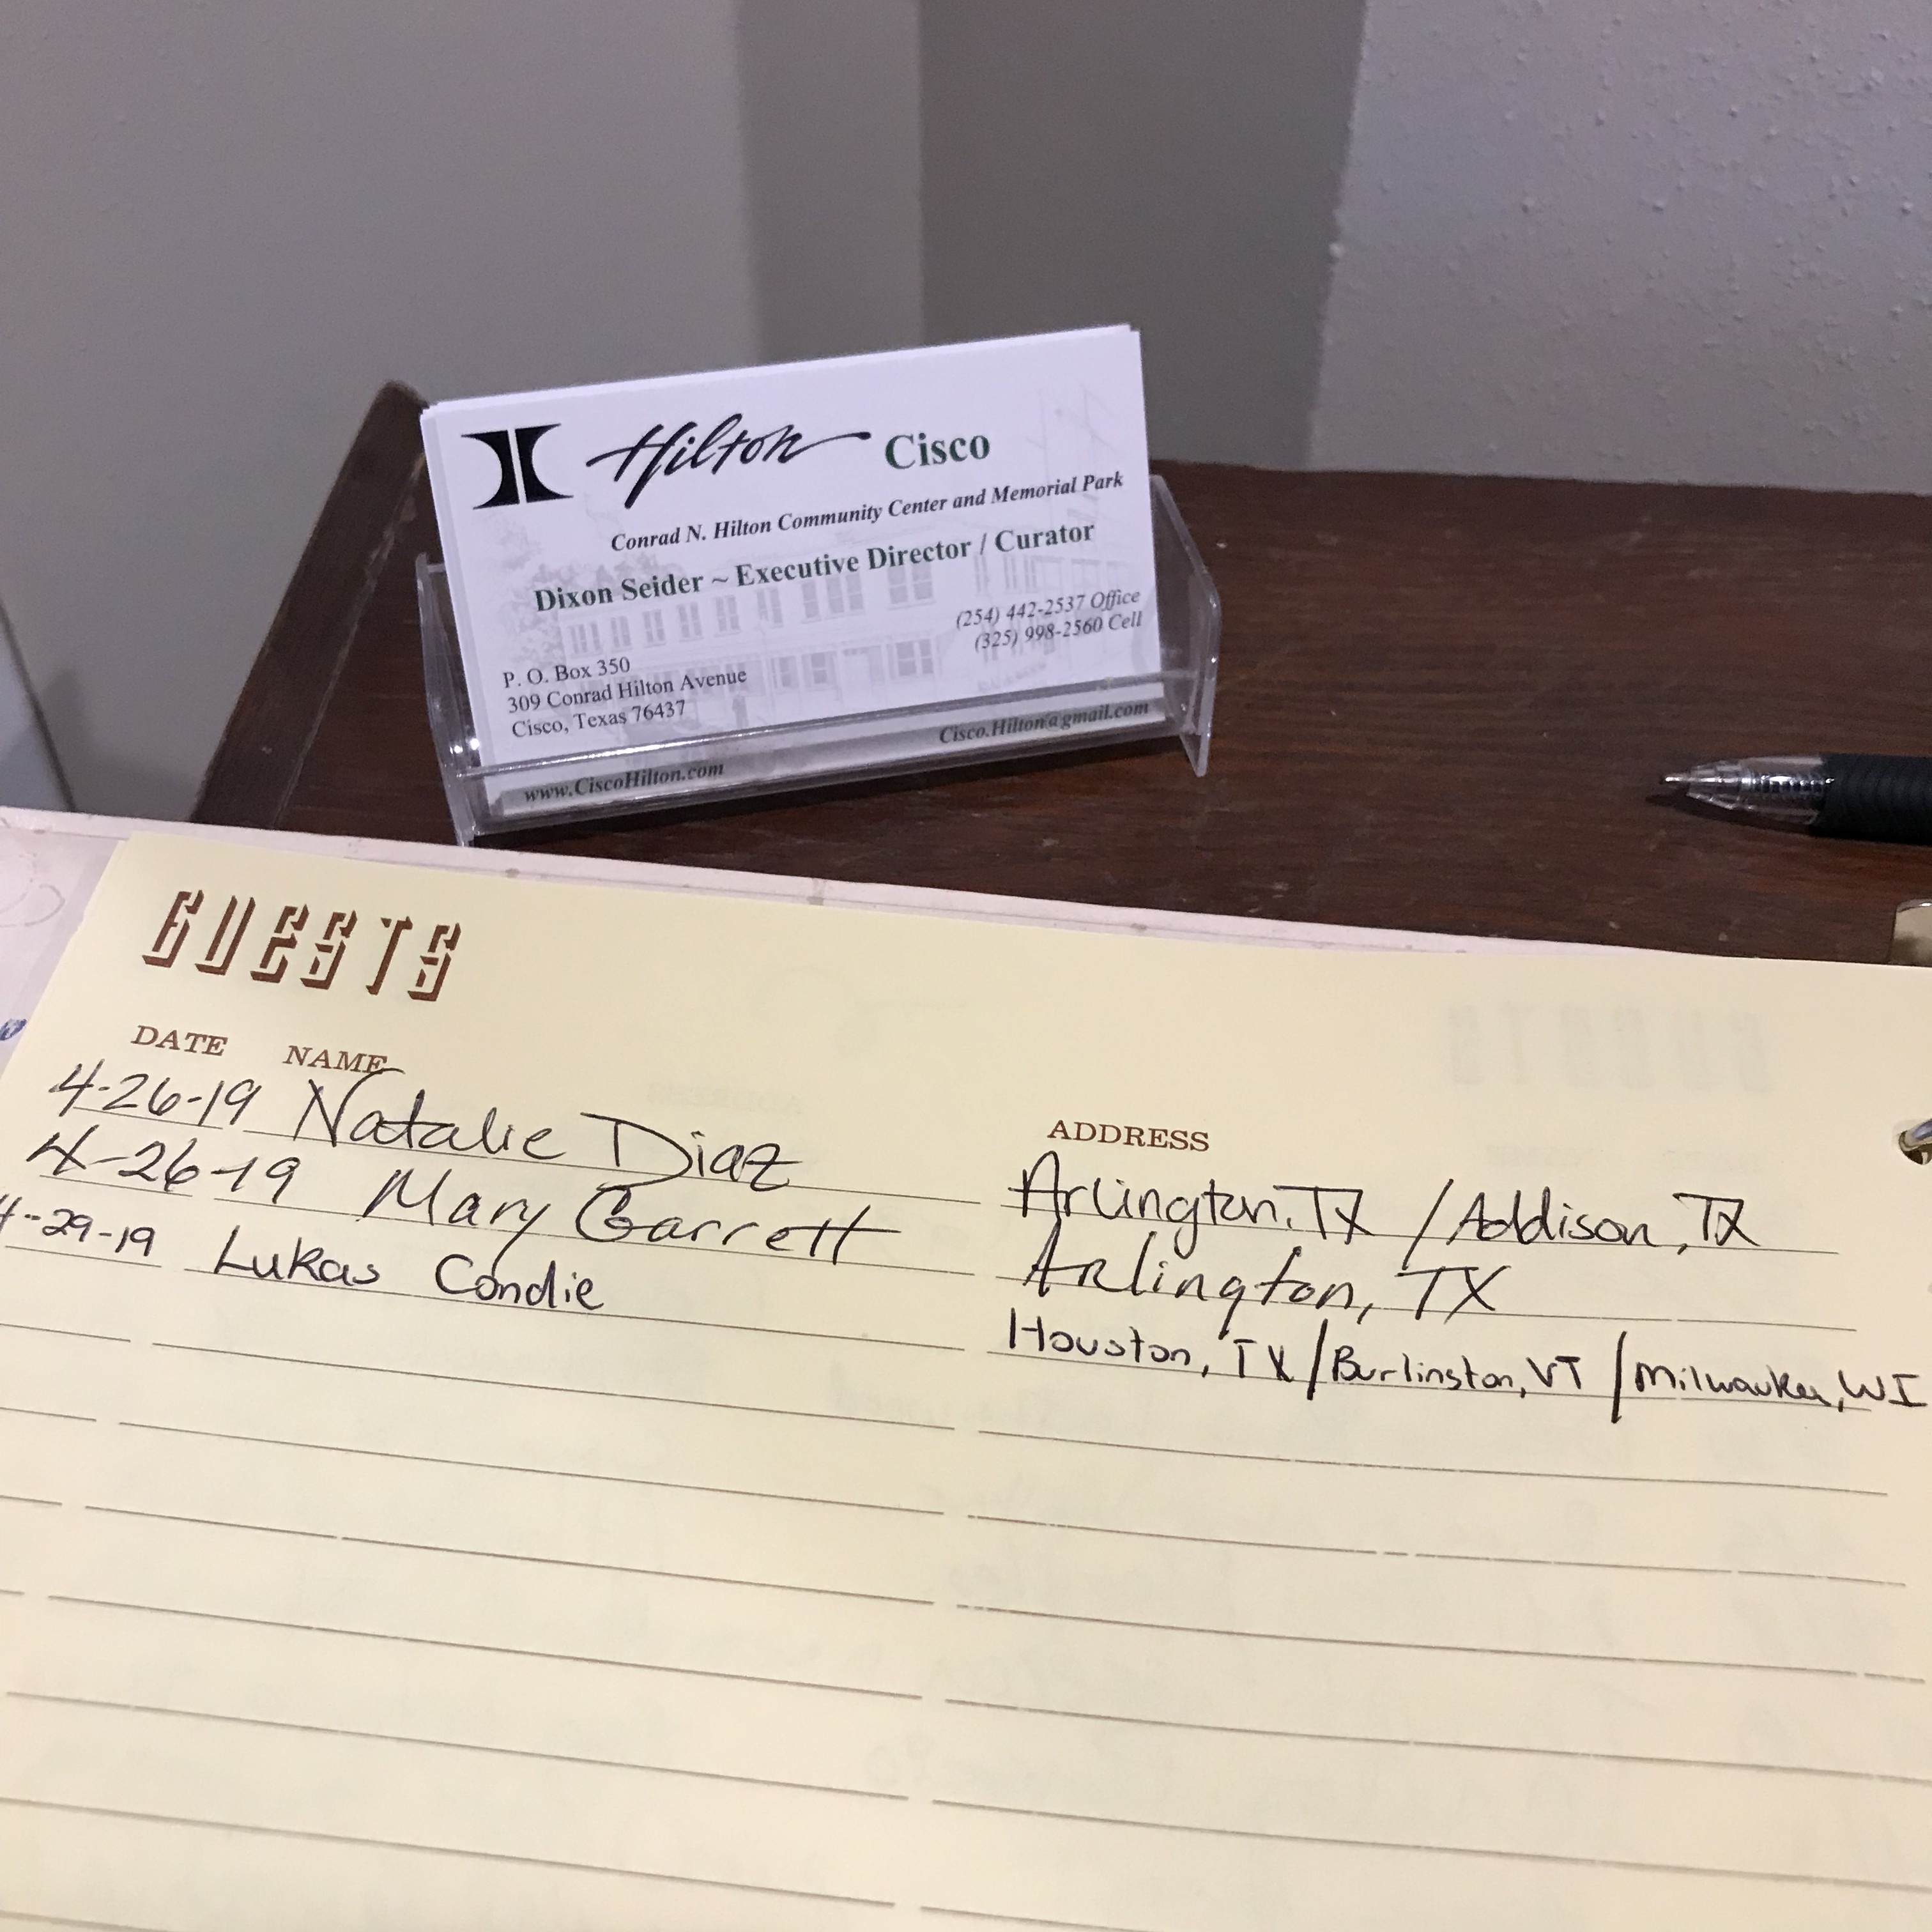 Hilton Cisco
Conrad N. Hilton Community Center and Memorial Park
Dixon Seider ~ Executive Director / Curator
(254) 442-2537 Office
(325) 998-2560 Cell
P. O. Box 350
309 Conrad Hilton Avenue
Cisco, Texas 76437
www.CiscoHilton.com
Cisco.Hilton@gmail.com
GUESTS
DATE NAME ADDRESS
4-26-19 Natalie Diaz Arlington, TX / Addison, TX
4-26-19 Mary Garrett Arlington, TX
4-29-19 Lukas Condie Houston, TX / Burlington, VT / Milwaukee, WI